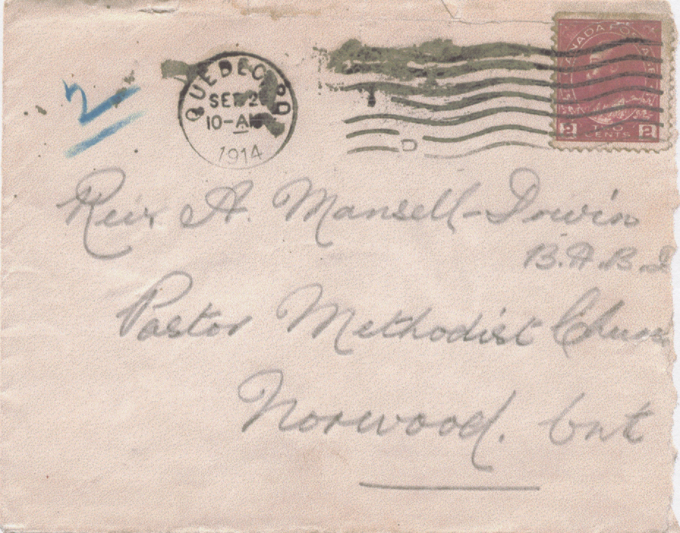 2
QUEBEC, P.Q.
SEP 2
10-AM
1914
D
CANADA POSTAGE
2 TWO CENTS 2
Rev A. Mansell-Irwin
B.A.B.D
Pastor Methodist Churc
Norwood. Ont